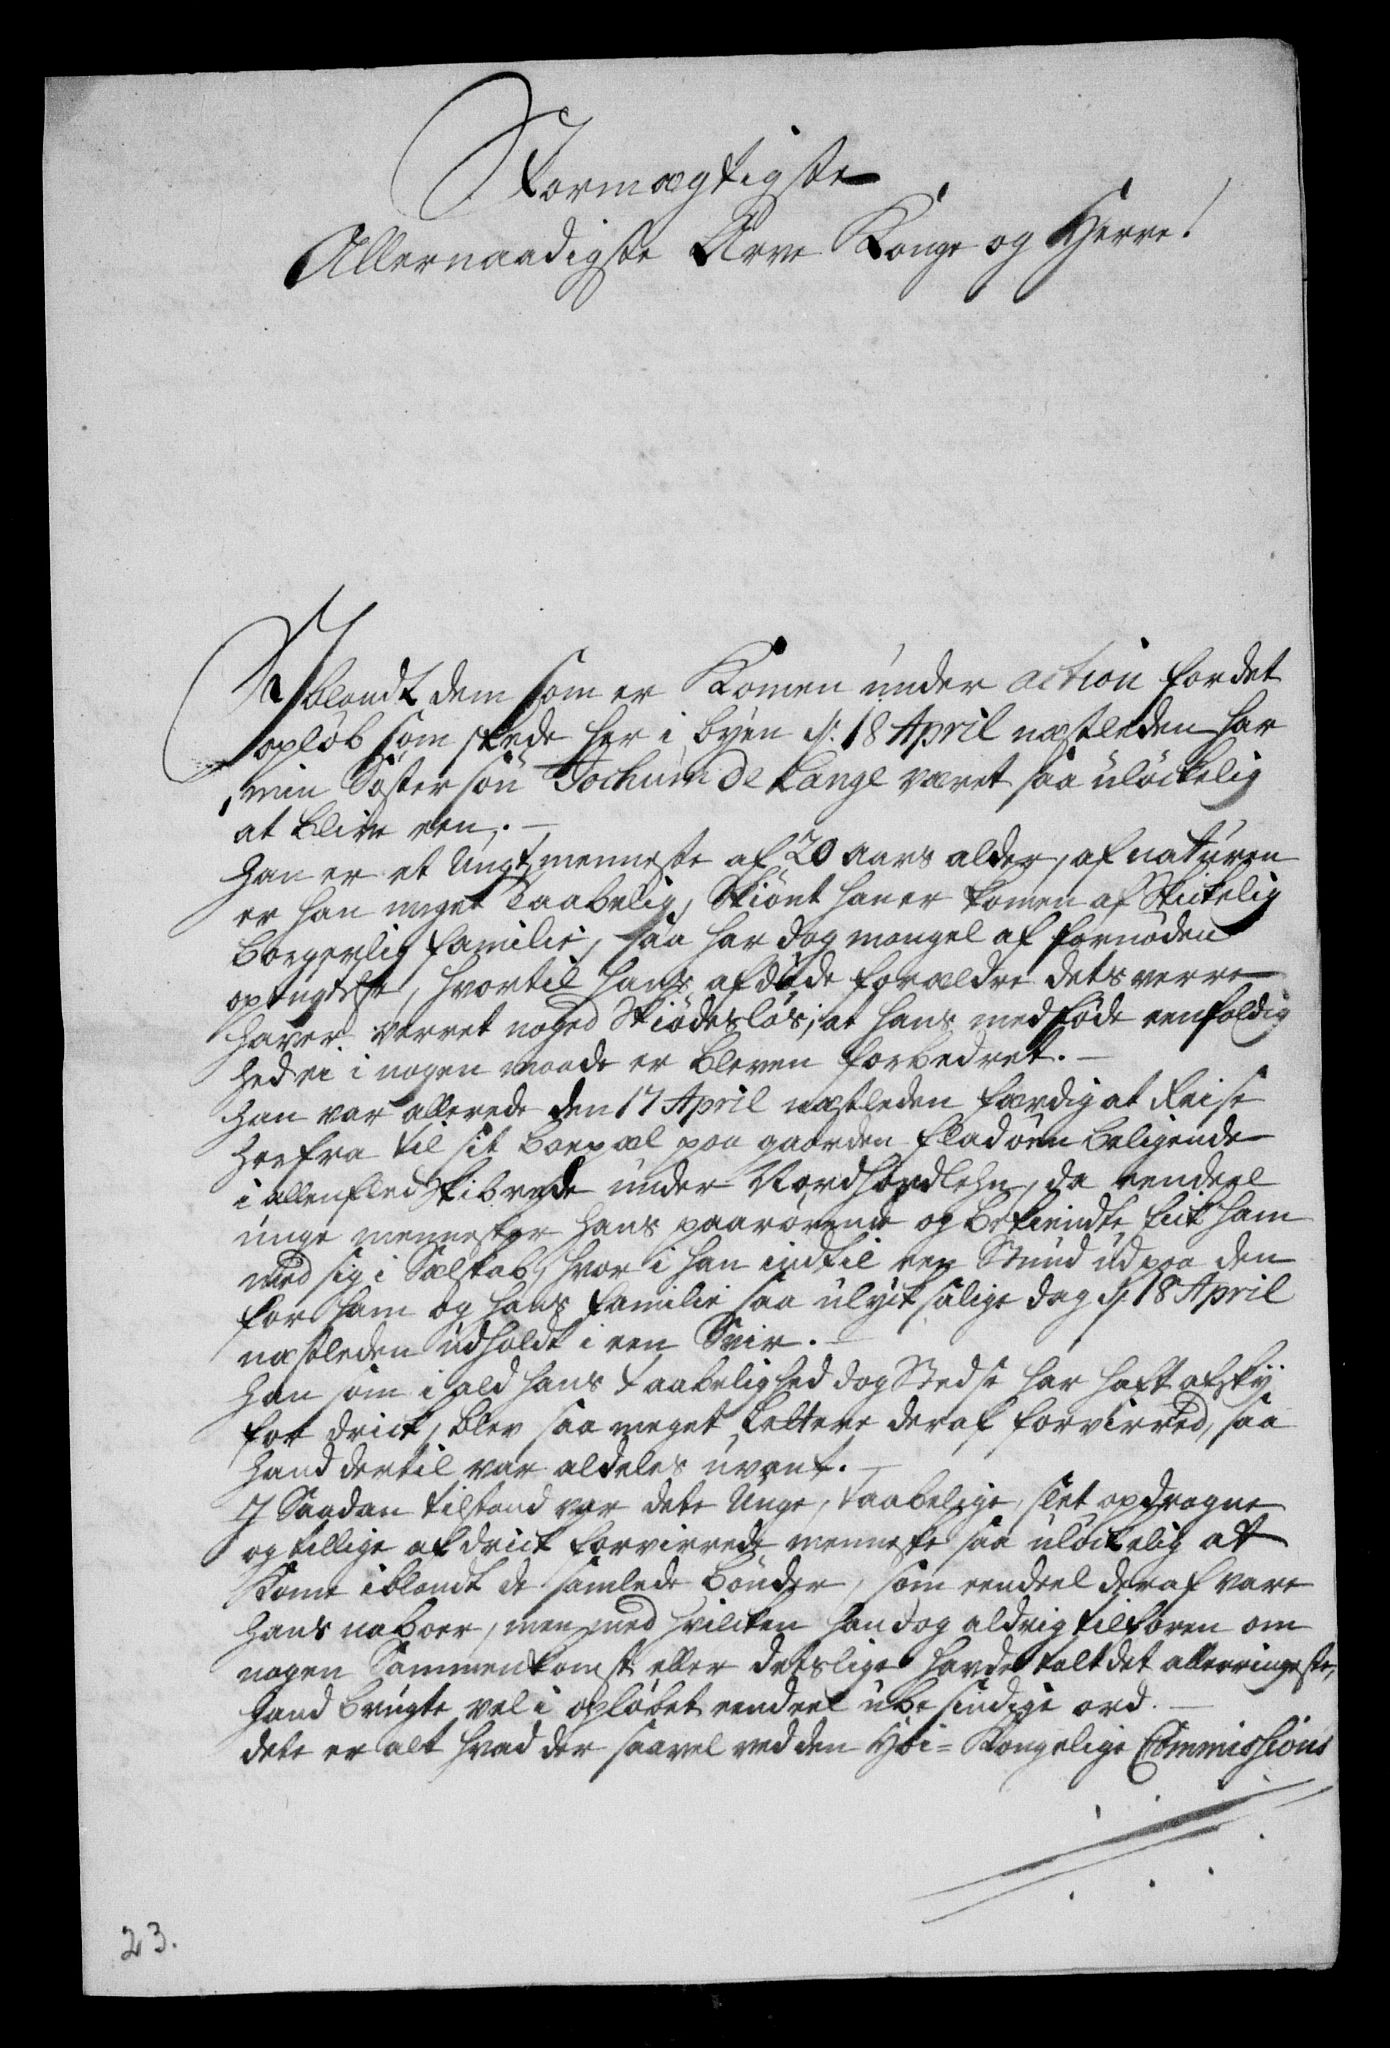 Stormægtigste
Allernaadigste Arve Konge og Herre!
Iblandt dem som er Komen under action for det
opløb som skede her i byen d. 18 April næstleden har
min Søster søn Jochum de Lange været saa uløckelig
at blive een.
Han er et Ungt menneske af 20 aars alder, af naturen
er han meget Taabelig, Skiønt han er komen af Skickelig
borgerlig familie, saa har dog mangel af fornøden
optugtelse, hvortil hans afdøde forældre dets verre
haver verret noged Skiødesløs, at hans medføde eenfoldig
hed ei i nogen maade er bleven forbedret.
Han var allerede den 17 April næstleden færdig at Reise
herfra til sit boepæl paa gaarden fladøen beligende
i allenfled Skibrede under Nordhordlehn, da eendeel
unge mennesker hans paarørende og befriendte fick ham
med sig i Sælskab, hvor i han indtil een Stund ud paa den
for ham og hans familie saa ulycksalige dag d. 18 April
næstleden udholdt i een Svir.
Han som i ald hans taabelighed dog Stedse har haft afsky
for drick, blev saa meget lettere deraf forvirred, saa
hand dertil var aldeles uvant.
I Saadan tilstand var dete Unge, taabelige, slet opdragne
og tillige af drick forvirrede menneske saa uløckelig at
Kome iblandt de samlede bønder, som eendeel deraf vare
hans naboer, men med hvilcken han dog aldrig tilforen om
nogen Sammenkomst eller detslige havde talt det allerringeste,
hand brugte vel i opløbet eendeel ubesindige ord.
dete er alt hvad der saavel ved den Høi-Kongelige Commissions
23.